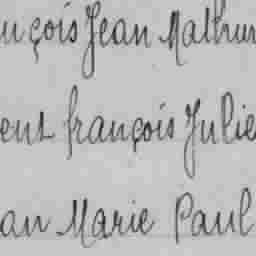 nçois Jean Mathur
ent françois Julie
an Marie Paul